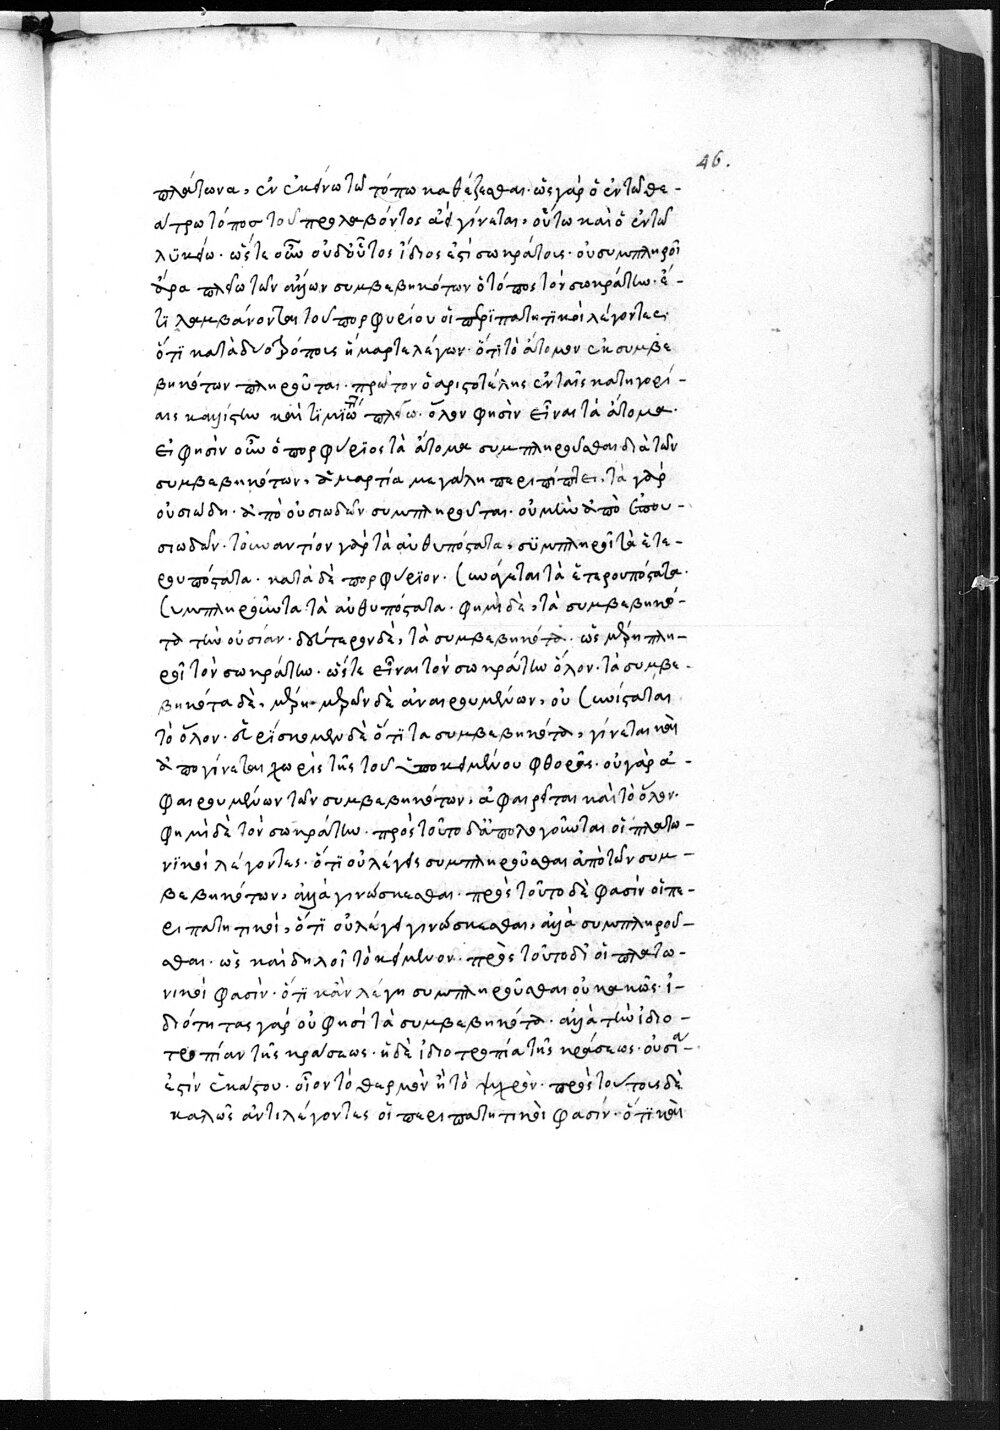 46.
πλάτωνα, ἐν ἐκείνω τῶ τόπω καθέζεσθαι. ὡς γὰρ ὁ ἐν τῶ θε-
άτρω τόπος τοῦ προλαβόντος ἀεὶ γίνεται, οὕτω καὶ ὁ ἐν τῶ
λϋκείω. ὥστε οὖν οὐδ' οὗτος ἴδιος ἐστὶ σωκράτους. οὐ συμπληροῖ
ἄρα πλείω τῶν ἄλλων συμβεβηκότων ὁ τόπος τὸν σωκράτην. ἔ-
τι λαμβάνονται τοῦ πορφυρίου οἱ περϊπατητϊκοὶ λέγοντες
ὅτϊ κατὰ δύο τρόπους ἥμαρτε λέγων. ὅτϊ τὸ ἄτομον ἐκ συμβε
βηκότων πληροῦται. πρῶτον ὁ ἀριστοτέλης ἐν ταῖς κατηγορί-
αις καλλίστην καὶ τιμϊω πλέω. ὅλον φησὶν εἶναι τὰ ἄτομα.
εἰ φησὶν οὖν ὁ πορφύρϊος τὰ ἄτομα συμπληροῦσθαι διὰ τῶν
συμβεβηκότων, ἁμαρτία μεγάλη περιπίπτει. τὰ γὰρ
οὐσιώδη. ἀπὸ οὐσιωδῶν συμπληροῦται. οὐ μὴν ἀπὸ ἐπου-
σιωδῶν. τοὐναντίον γὰρ τὰ αὐθυπόστατα, σϋμπληροῖ τὰ ἑτε-
ρουπόστατα. κατὰ δὲ πορφύρϊον. συνάγεται τὰ ἑτερουπόστατα.
συμπληροῦντα τὰ αὐθυπόστατα. φημὶ δὲ, τὰ συμβεβηκό-
τα τὴν οὐσίαν. δεύτερον δὲ, τὰ συμβεβηκότα. ὡς μέρη πλη-
ροῖ τὸν σωκράτην. ὥστε εἶναι τὸν σωκράτην ὅλον. τὰ συμβε-
βηκότα δὲ, μέρη. μερῶν δὲ ἀναιρουμένων, οὐ συνίσταται
τὸ ὅλον. εὑρίσκομεν δὲ ὅτϊ τα συμβεβηκότα, γίνεται καὶ
ἀπογίνεται χωρὶς τῆς τοῦ ὑποκειμένου φθορᾶς. οὐ γὰρ ἀ-
φαιρουμένων τῶν συμβεβηκότων, ἀφαιρεῖται καὶ τὸ ὅλον.
φημὶ δὲ τὸν σωκράτην. πρὸς τοῦτο δὲ ἀπολογοῦνται οἱ πλατω-
νϊκοὶ λέγοντες. ὅτϊ οὐ λέγει συμπληροῦσθαι ἀπὸ τῶν συμ-
βεβηκότων, ἀλλὰ γινώσκεσθαι. πρὸς τοῦτο δὲ φασὶν οἱ πε-
ριπατητικοὶ, ὅτϊ οὐ λέγει γινώσκεσθαι, ἀλλὰ συμπληροῦ-
σθαι. ὡς καὶ δηλοῖ τὸ κείμενον. πρὸς τοῦτο δὲ οἱ πλατω-
νικοί φασὶν. ὅτϊ κἂν λέγη συμπληροῦσθαι οὐ κακῶς. ἰ-
διότητας γὰρ οὐ φησὶ τὰ συμβεβηκότα. ἀλλὰ τὴν ἰδιο-
τροπίαν τῆς κράσεως. ἡ δὲ ἰδιοτροπία τῆς κράσεως. οὐσία
ἐστὶν ἑκάστου. οἷον τὸ θερμὸν ἢ τὸ ψυχρὸν. πρὸς τούτοις δὲ
καλῶς ἀντιλέγοντες οἱ περιπατητικοὶ φασίν. ὅτϊ καὶ